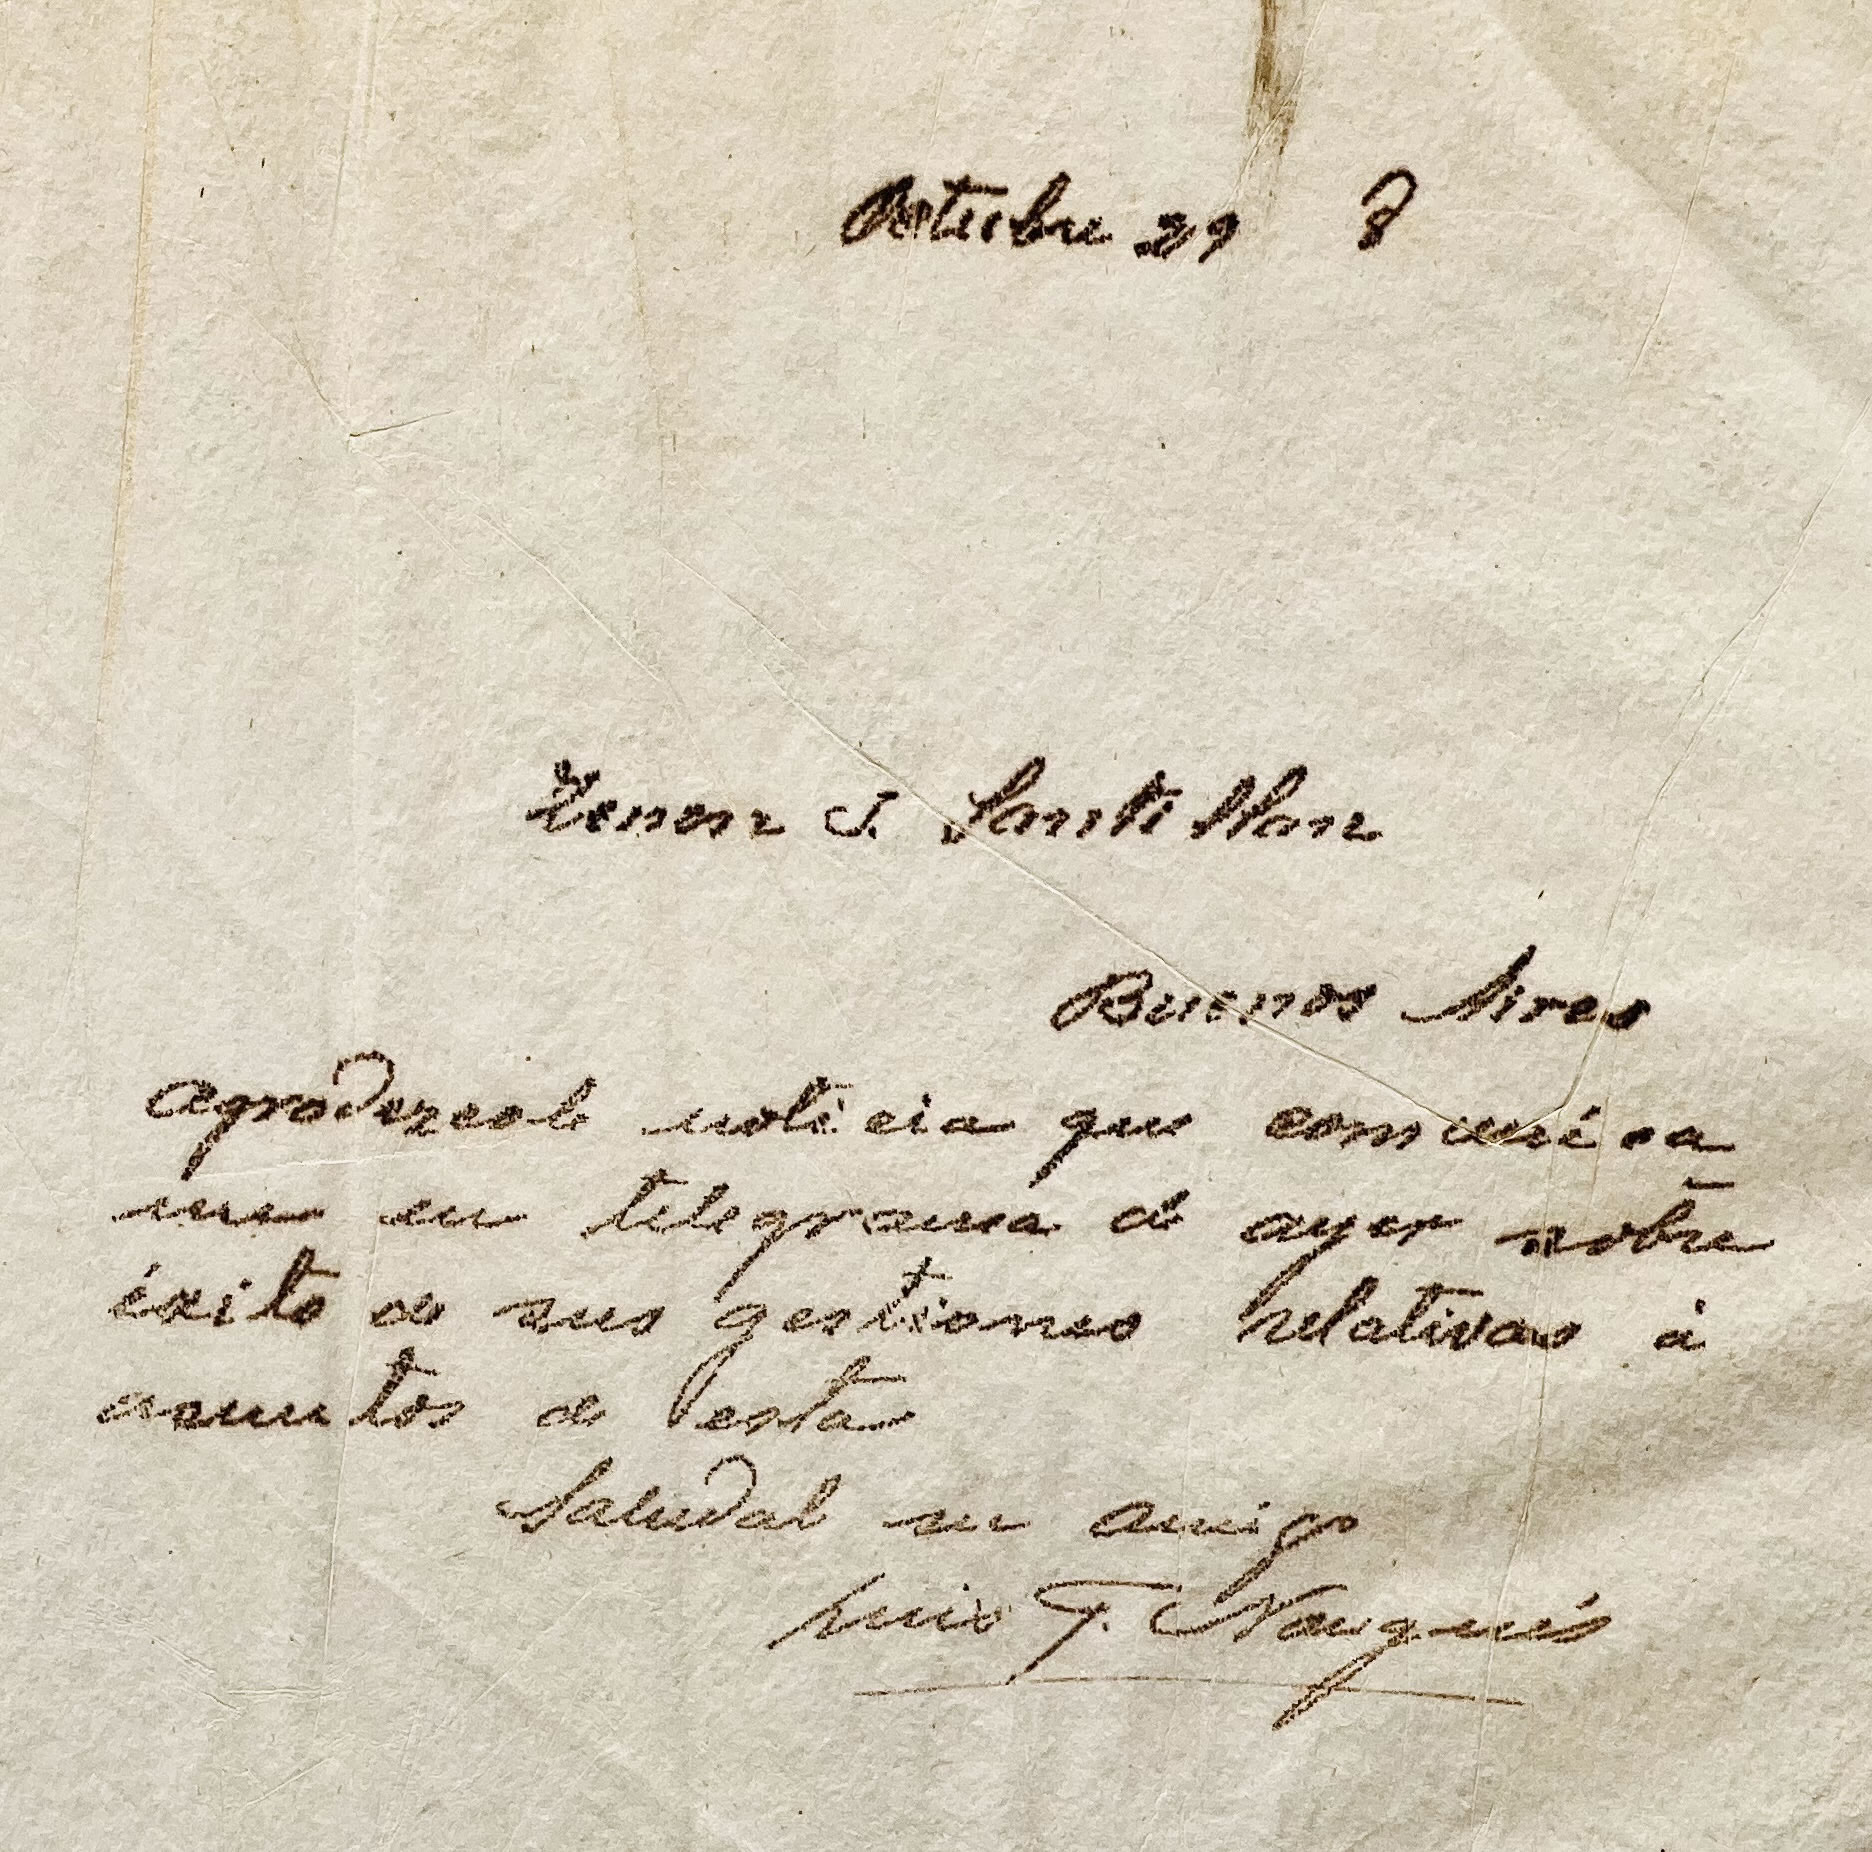 Octubre 29 8
Zenon J. Santillan
Buenos Aires
Agradezcole noticia que comunica
me en telegrama de ayer sobre
éxito de sus gestiones relativas á
asuntos de esta
Saludal su amigo
Luis F. Nougués